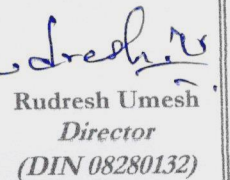 Rudresh Umesh
Director
(DIN 08280132)